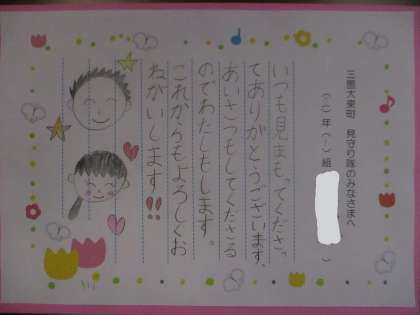 三国大東町　見守り隊のみなさまへ
（二）年（一）組（　）
いつも見まもってくださっ
てありがとうございます。
あいさつもしてくださる
のでわたしもします。
これからもよろしくお
ねがいします!!